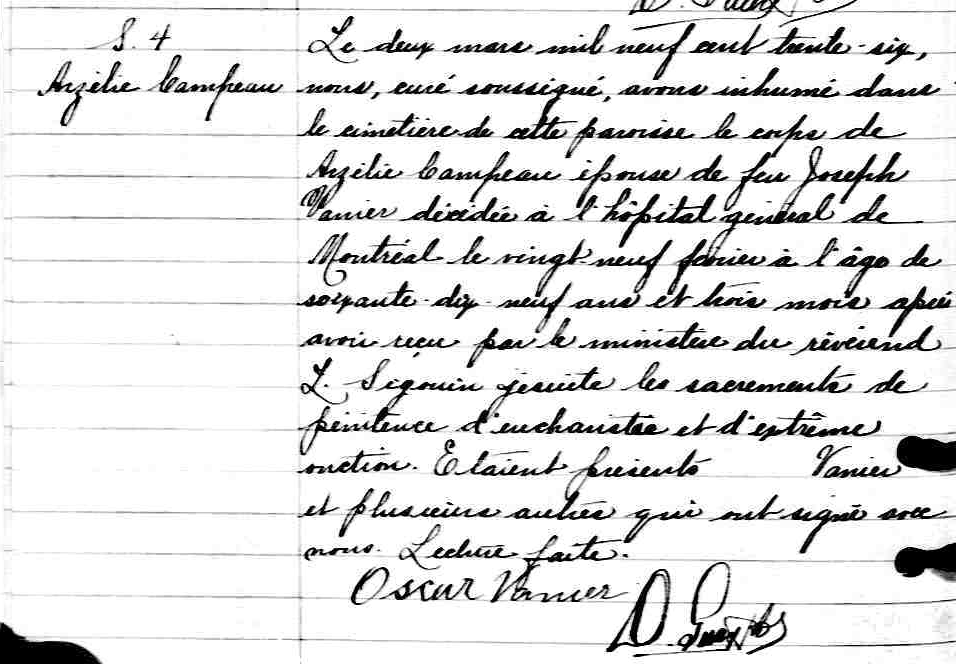 S. 4
Arzélie Campeau
Le deux mars mil neuf cent trente-six,
nous, curé soussigné, avons inhumé dans
le cimetière de cette paroisse le corps de
Arzélie Campeau épouse de feu Joseph
Vanier décédée à l'hôpital général de
Montréal le vingt-neuf février à l'âge de
soixante-dix-neuf ans et trois mois après
avoir reçu par le ministère du révérend
L. Sigouin jésuite les sacrements de
pénitence d'eucharistie et d'extrême
onction. Etaient présents Vanier
et plusieurs autres qui ont signé avec
nous. Lecture faite.
Oscar Vanier
D.